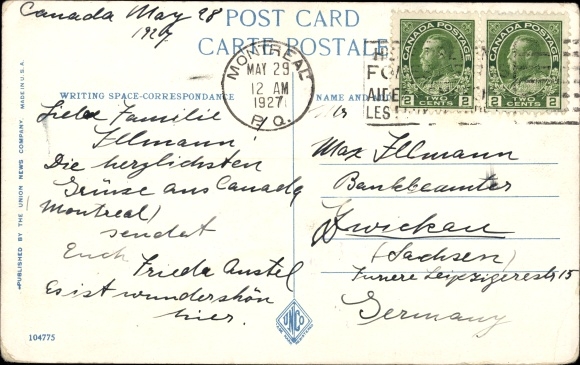 Canada May 28
1927
POST CARD
CARTE POSTALE
CANADA POSTAGE
CANADA POSTAGE
2 TWO CENTS 2
2 TWO CENTS 2
MONTREAL
MAY 29
12 AM
1927
P.Q.
AIDE
LES
WRITING SPACE-CORRESPONDANCE
NAME AND
Liebe Familie
Illmann
Die herzlichsten
Grüsse aus Canada
Montreal)
sendet
Euch
Frieda Anstel
Es ist wundershön
hier.
Max Illmann
Bankbeamter
Zwickau
(Sachsen)
Innere Leipzigerestr 15
Germany
PUBLISHED BY THE UNION NEWS COMPANY. MADE IN U.S.A.
UNCO
104775